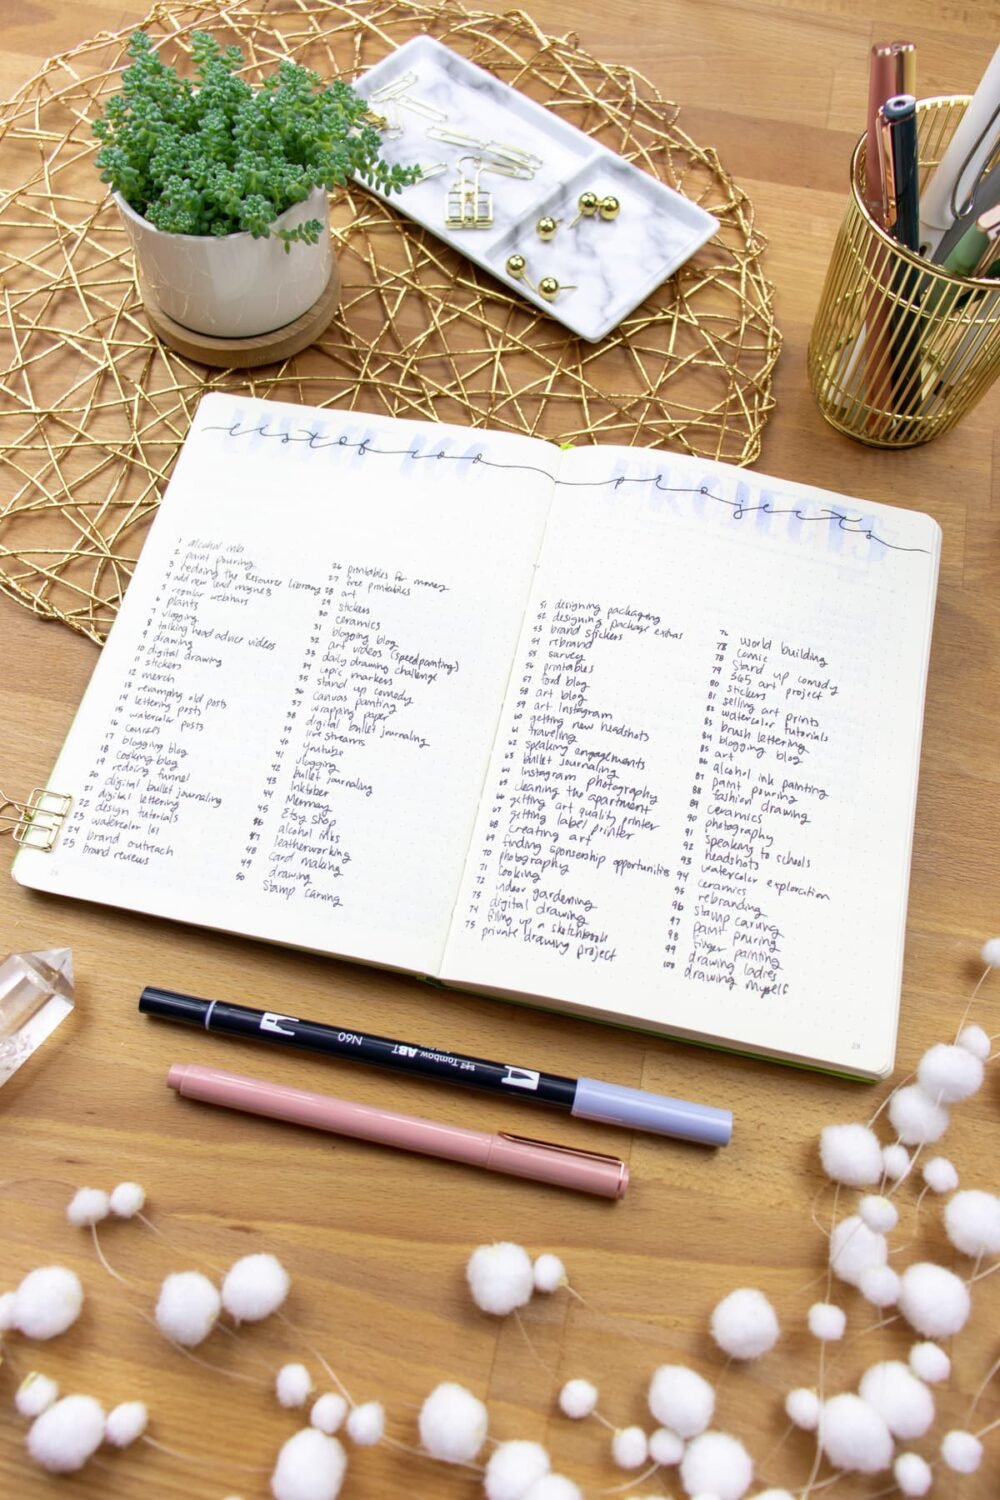 list of 100
LIST OF 100
projects
PROJECTS
1 alcohol ink
2 paint pouring
3 redoing the Resource Library
4 add new lead magnets
5 regular webinars
6 plants
7 vlogging
8 talking head advice videos
9 drawing
10 digital drawing
11 stickers
12 merch
13 revamping old posts
14 lettering posts
15 watercolor posts
16 courses
17 blogging blog
18 cooking blog
19 redoing funnel
20 digital bullet journaling
21 digital lettering
22 design tutorials
23 watercolor 101
24 brand outreach
25 brand reviews
26 printables for money
27 free printables
28 art
29 stickers
30 ceramics
31 blogging blog
32 art videos (speedpainting)
33 daily drawing challenge
34 copic markers
35 stand up comedy
36 canvas painting
37 wrapping paper
38 digital bullet journaling
39 live streams
40 youtube
41 vlogging
42 bullet journaling
43 inktober
44 Mermay
45 etsy shop
46 alcohol inks
47 leatherworking
48 card making
49 drawing
50 stamp carving
51 designing packaging
52 designing package extras
53 brand stickers
54 rebrand
55 survey
56 printables
57 food blog
58 art blog
59 art Instagram
60 getting new headshots
61 traveling
62 speaking engagements
63 bullet journaling
64 Instagram photography
65 cleaning the apartment
66 getting art quality printer
67 getting label printer
68 creating art
69 finding sponsorship opportunities
70 photography
71 cooking
72 indoor gardening
73 digital drawing
74 filling up a sketchbook
75 private drawing project
76 world building
78 comic
78 stand up comedy
79 365 art project
80 stickers
81 selling art prints
82 watercolor tutorials
83 brush lettering
84 blogging blog
85 art
86 alcohol ink painting
87 paint pouring
88 fashion drawing
89 ceramics
90 photography
91 speaking to schools
92 headshots
93 watercolor exploration
94 ceramics
95 rebranding
96 stamp carving
97 paint pouring
98 finger painting
99 drawing ladies
100 drawing myself
N60
Tombow ABT